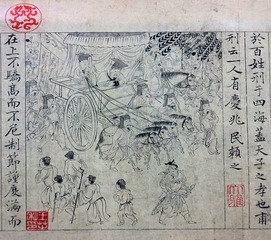 於百姓刑于四海蓋天子之孝也甫
刑云一人有慶兆民賴之
在上不驕高而不危制節謹度滿而